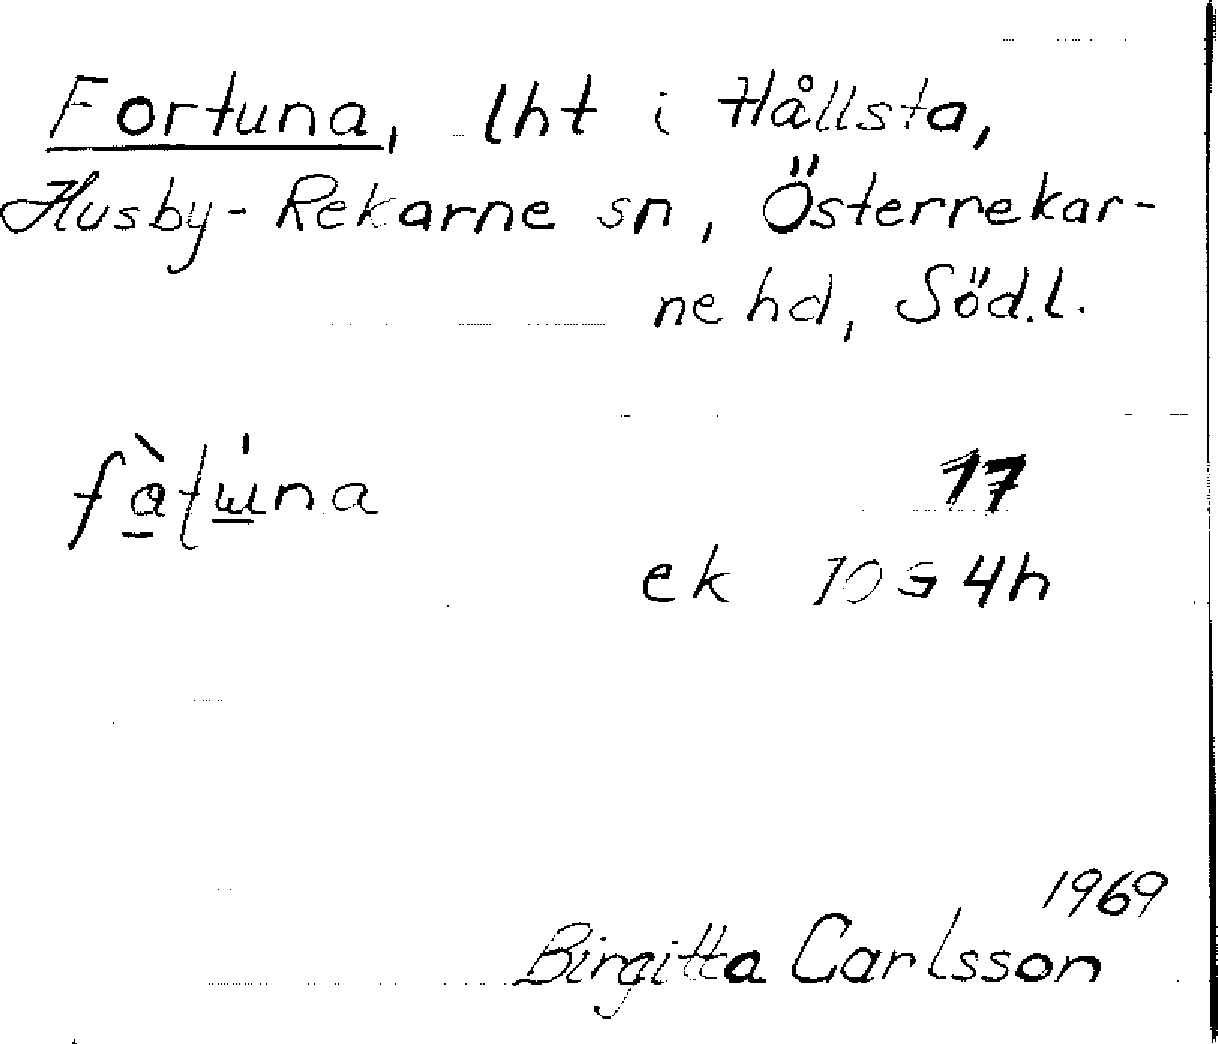 Fortuna, lht i Hållsta,
Husby-Rekarne sn, Österrekar-
ne hd, Söd.l.
17
ek 10 G 4h
1969
Birgitta Carlsson